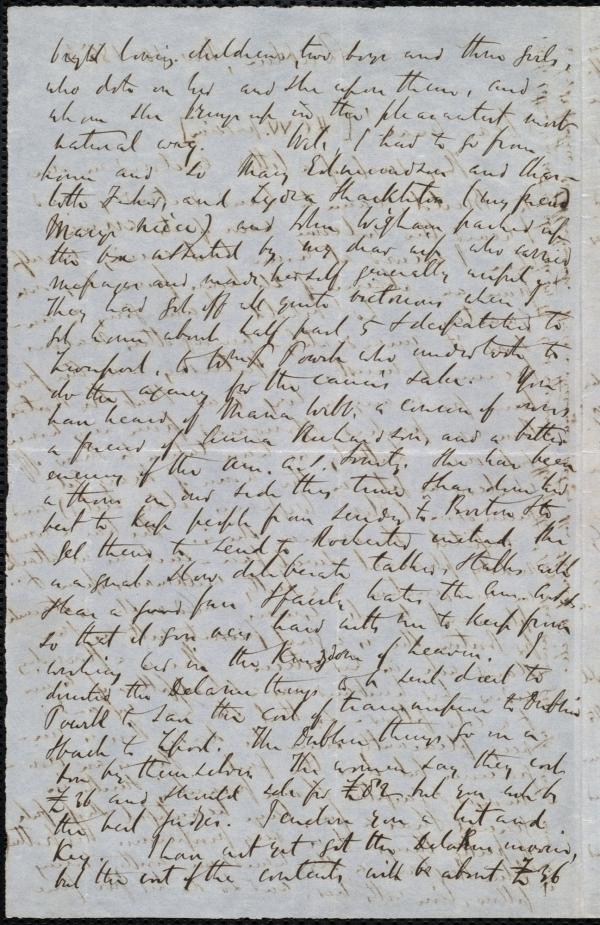 bright loving children, two boys and three girls,
who dote on her and she upon them, and
whom she brings up in the pleasantest most
natural way. Well, I had to go from
home and so Mary Edmundson and Char-
lotte Fisher, and Lydia Shackleton (my friend
Mary's niece) and John Wigham packed up
the box assisted by my dear wife who carried
messages and made herself generally useful
They had got off all quite victorious when I
got home about half past 5 & despatched to
Liverpool, to Powell who undertook to
do the agency for the cause's sake. You
have heard of Maria Webb, a cousin of mine
a friend of Anna Richardson, and a bitter
enemy of the Am. A.S. Society. She has been
a thorn in our side this time & has done her
best to keep people from sending to Boston &
get them to send to Rochester instead. She
is a great slow deliberate talker, & talks with
such a good face & fairly hates the Am. A.S.S.
so that it goes very hard with me to keep from
wishing her in the Kingdom of heaven. I
directed the Delarue things to be sent direct to
Powell to save the cost of transmission to Dublin
& back to Lpool. The Dublin things go in a
box by themselves. The women say they cost
£36 and should sell for £82 but you will be
the best judges. I enclose you a list and
Key. I have not yet got the DelaRue invoice,
but the cost of the contents will be about £36